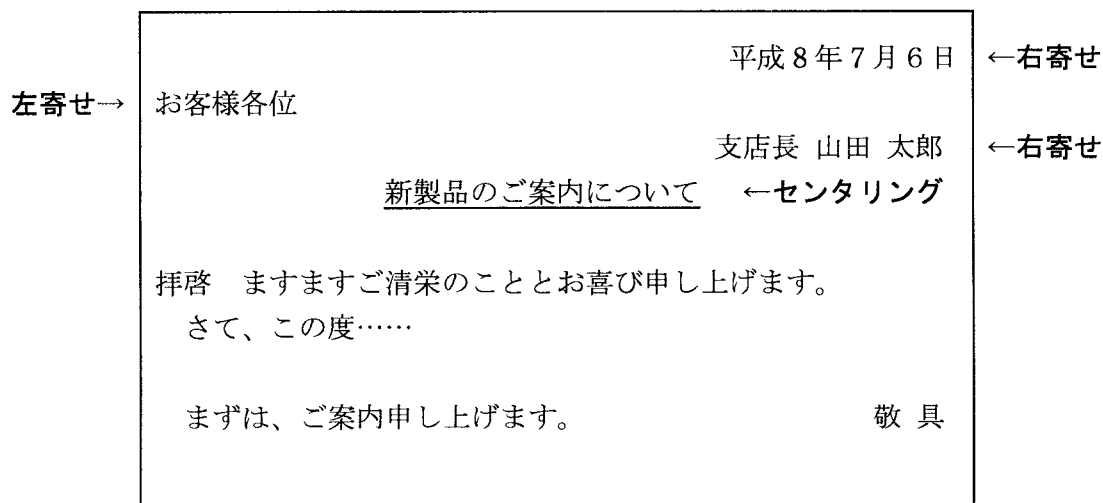 平成8年7月6日 ←右寄せ
左寄せ→ お客様各位
支店長 山田 太郎 ←右寄せ
新製品のご案内について ←センタリング
拝啓 ますますご清栄のこととお喜び申し上げます。
さて、この度……
まずは、ご案内申し上げます。 敬 具